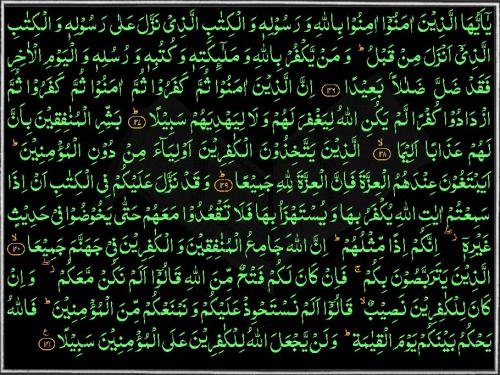 یٰۤاَیُّهَا الَّذِیْنَ اٰمَنُوْۤا اٰمِنُوْا بِاللهِ وَ رَسُوْلِهٖ وَ الْكِتٰبِ الَّذِیْ نَزَّلَ عَلٰى رَسُوْلِهٖ وَ الْكِتٰبِ
الَّذِیْۤ اَنْزَلَ مِنْ قَبْلُ ؕ وَ مَنْ یَّكْفُرْ بِاللهِ وَ مَلٰٓىِٕكَتِهٖ وَ كُتُبِهٖ وَ رُسُلِهٖ وَ الْیَوْمِ الْاٰخِرِ
فَقَدْ ضَلَّ ضَلٰلًۢا بَعِیْدًا ﴿۱۳۶﴾ اِنَّ الَّذِیْنَ اٰمَنُوْا ثُمَّ كَفَرُوْا ثُمَّ اٰمَنُوْا ثُمَّ كَفَرُوْا ثُمَّ
ازْدَادُوْا كُفْرًا لَّمْ یَكُنِ اللهُ لِیَغْفِرَ لَهُمْ وَ لَا لِیَهْدِیَهُمْ سَبِیْلًا ﴿۱۳۷﴾ بَشِّرِ الْمُنٰفِقِیْنَ بِاَنَّ
لَهُمْ عَذَابًا اَلِیْمًا ﴿۱۳۸﴾ الَّذِیْنَ یَتَّخِذُوْنَ الْكٰفِرِیْنَ اَوْلِیَآءَ مِنْ دُوْنِ الْمُؤْمِنِیْنَ ؕ
اَیَبْتَغُوْنَ عِنْدَهُمُ الْعِزَّةَ فَاِنَّ الْعِزَّةَ لِلّٰهِ جَمِیْعًا ﴿۱۳۹﴾ وَ قَدْ نَزَّلَ عَلَیْكُمْ فِی الْكِتٰبِ اَنْ اِذَا
سَمِعْتُمْ اٰیٰتِ اللهِ یُكْفَرُ بِهَا وَ یُسْتَهْزَاُ بِهَا فَلَا تَقْعُدُوْا مَعَهُمْ حَتّٰى یَخُوْضُوْا فِیْ حَدِیْثٍ
غَیْرِهٖۤ ۖ اِنَّكُمْ اِذًا مِّثْلُهُمْ ؕ اِنَّ اللهَ جَامِعُ الْمُنٰفِقِیْنَ وَ الْكٰفِرِیْنَ فِیْ جَهَنَّمَ جَمِیْعَا ﴿۱۴۰﴾
الَّذِیْنَ یَتَرَبَّصُوْنَ بِكُمْ ۚ فَاِنْ كَانَ لَكُمْ فَتْحٌ مِّنَ اللهِ قَالُوْۤا اَلَمْ نَكُنْ مَّعَكُمْ ۖ وَ اِنْ
كَانَ لِلْكٰفِرِیْنَ نَصِیْبٌ ۙ قَالُوْۤا اَلَمْ نَسْتَحْوِذْ عَلَیْكُمْ وَ نَمْنَعْكُمْ مِّنَ الْمُؤْمِنِیْنَ ؕ فَاللهُ
یَحْكُمُ بَیْنَكُمْ یَوْمَ الْقِیٰمَةِ ؕ وَ لَنْ یَّجْعَلَ اللهُ لِلْكٰفِرِیْنَ عَلَى الْمُؤْمِنِیْنَ سَبِیْلًا ﴿۱۴۱﴾